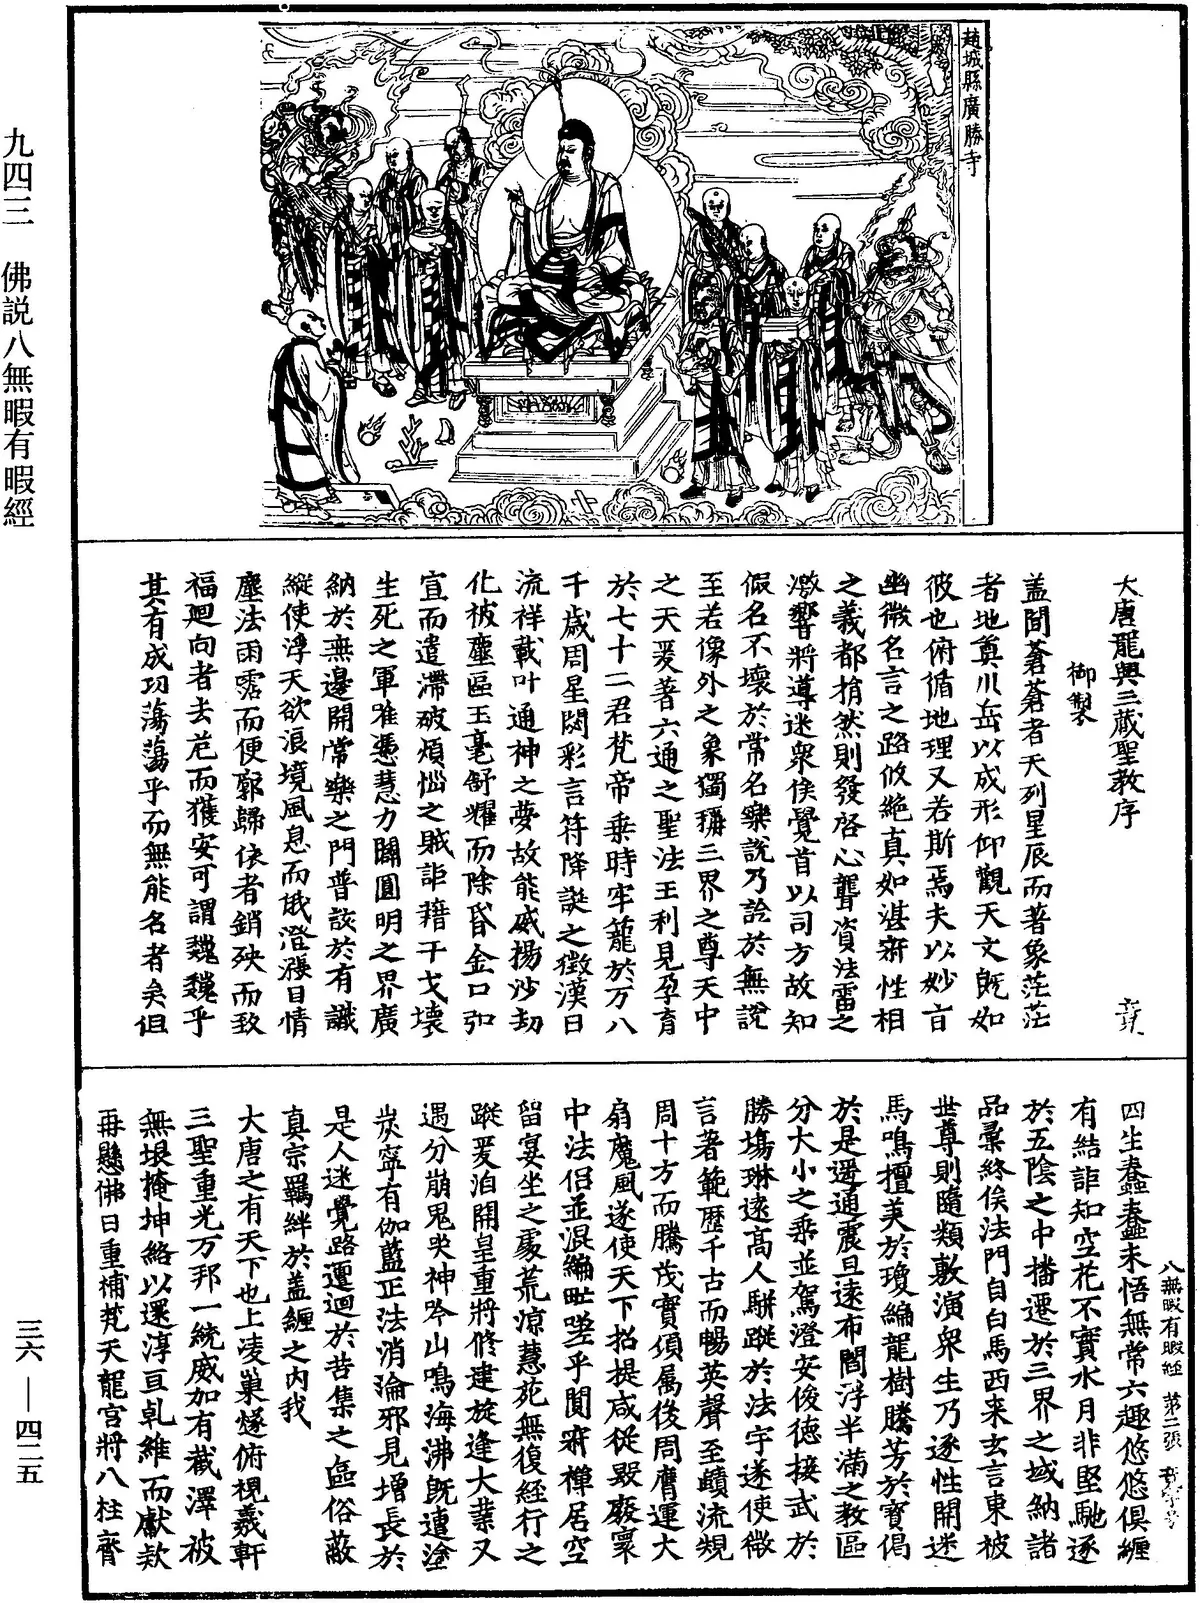 趙城縣廣勝寺
大唐龍興三藏聖教序
御製
蓋聞蒼蒼者天列星辰而著象茫茫
者地奠川岳以成形仰觀天文既如
彼也俯循地理又若斯焉夫以妙旨
幽微名言之路攸絶真如湛寂性相
之義都捐然則發啓心聾資法雷之
激響將導迷衆俟覺首以司方故知
假名不壞於常名樂說乃詮於無說
至若像外之象獨稱三界之尊天中
之天爰著六通之聖法王利見孕育
於七十二君梵帝乘時牢籠於万八
千歲周星閟彩言符降誕之徵漢日
流祥載叶通神之夢故能威揚沙劫
化被塵區玉毫舒耀而除昏金口弘
宣而遣滯破煩惱之賊詎藉干戈壞
生死之軍唯憑慧力闢圓明之界廣
納於無邊開常樂之門普該於有識
縱使浮天欲浪境風息而俄澄漲日情
塵法雨霑而便廓歸依者銷殃而致
福迴向者去危而獲安可謂巍巍乎
其有成功蕩蕩乎而無能名者矣但
八無暇有暇經 第二張
四生蠢蠢未悟無常六趣悠悠俱纏
有結詎知空花不實水月非堅馳逐
於五陰之中播遷於三界之域納諸
品彙終俟法門自白馬西来玄言東被
世尊則隨類敷演衆生乃逐性開迷
馬鳴擅美於瓊編龍樹騰芳於寶偈
於是遐通震旦遠布閻浮半滿之教區
分大小之乘並駕澄安俊德接武於
勝塲琳遠高人騈蹤於法宇遂使微
言著範歷千古而暢英聲至賾流規
周十方而騰茂實傾屬後周膺運大
扇魔風遂使天下招提咸從毀廢寰
中法侣並混編甿嗟乎閴寂禪居空
留宴坐之處荒涼慧苑無復經行之
蹤爰泊開皇重將修建旋逢大業又
遇分崩鬼哭神吟山鳴海沸既遭塗
炭寧有伽藍正法消淪邪見增長於
是人迷覺路邅迴於苦集之區俗蔽
真宗羈絆於盖纏之内我
大唐之有天下也上淩巢燧俯視羲軒
三聖重光万邦一統威加有截澤被
無垠掩坤絡以還淳亘乹維而獻款
再懸佛日重補梵天龍宮將八柱齊
九四三 佛說八無暇有暇經
三六—四二五